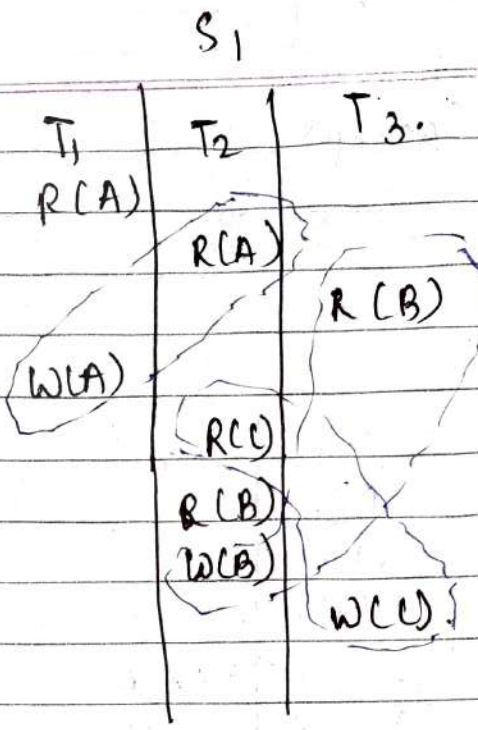 S1
T1 T2 T3.
R(A)
R(A)
R(B)
W(A)
R(C)
R(B)
W(B)
W(C)